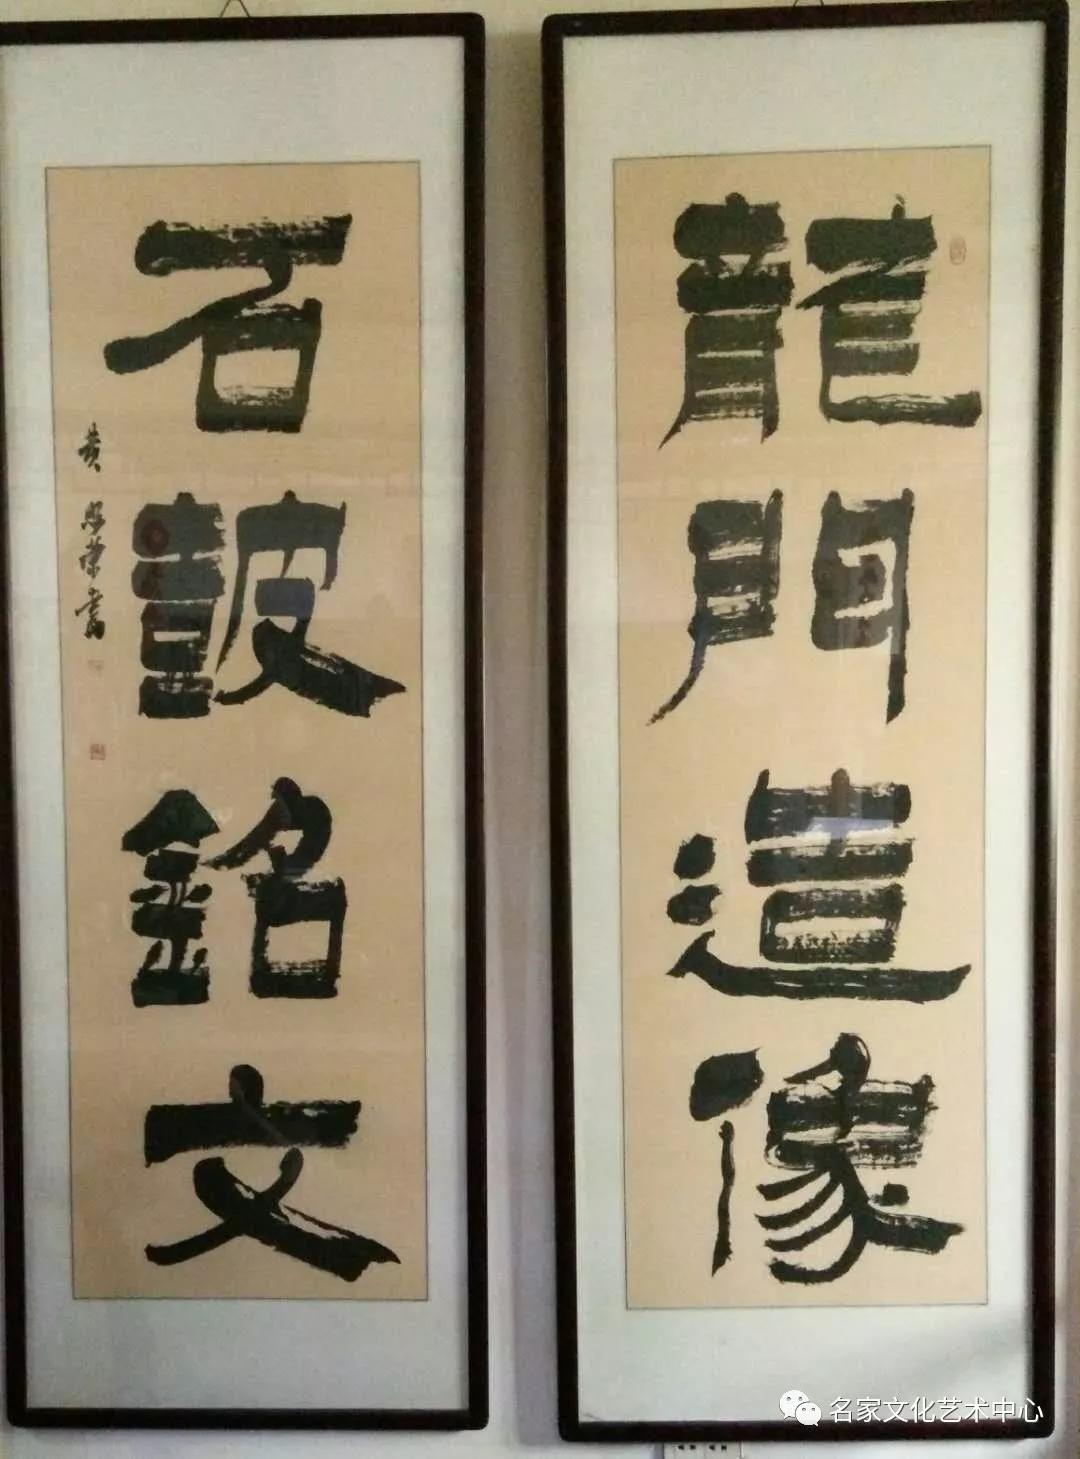 龍門造像
石皷銘文
黄榮書
名家文化艺术中心